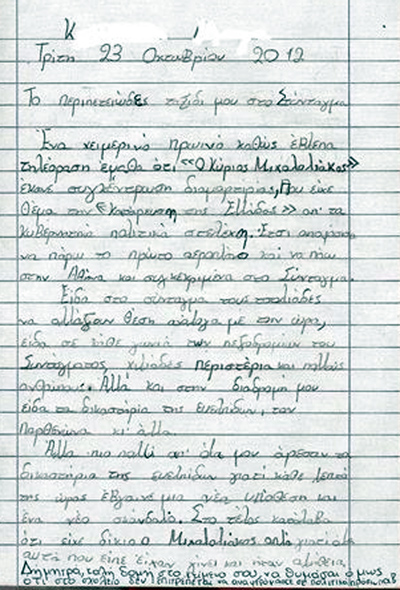 Κ
Τρίτη 23 Οκτωβρίου 2012
Το περιπετειώδες ταξίδι μου στο Σύνταγμα
Ένα χειμερινό πρωινό καθώς έβλεπα
τηλεόραση έμαθα ότι «Ο Κύριος Μιχαλολιάκος»
έκανε συγκέντρωση διαμαρτυρίας, που είχε
θέμα την «Κατάρρευση της Ελλάδος» απ' τα
κυβερνητικά πολιτικά στελέχη. Έτσι αποφάσισα
να πάρω το πρώτο αεροπλάνο και να πάω
στην Αθήνα και συγκεκριμένα στο Σύνταγμα.
Είδα στο σύνταγμα τους τσολιάδες
να αλλάζουν θέση ανάλογα με την ώρα,
είδα σε κάθε γωνιά των πεζοδρομίων του
Συντάγματος, χιλιάδες περιστέρια και πολλούς
ανθρώπους. Αλλά και στην διαδρομή μου
είδα τα δικαστήρια της ευελπίδων, τον
Παρθενώνα κι' άλλα.
Αλλά πιο πολύ απ' όλα μου άρεσαν τα
δικαστήρια της ευελπίδων γιατί κάθε λεπτό
της ώρας έβγαινε μια νέα υπόθεση και
ένα νέο σκάνδαλο. Στο τέλος κατάλαβα
ότι είχε δίκιο ο Μιχαλολιάκος γιατί όλα
αυτά που είπε είχαν γίνει και ήταν αλήθεια.
Δήμητρα, καλή δομή στο κείμενό σου, να θυμάσαι όμως
ότι στο σχολείο δεν επιτρέπεται να αναφερόμαστε σε πολιτικά